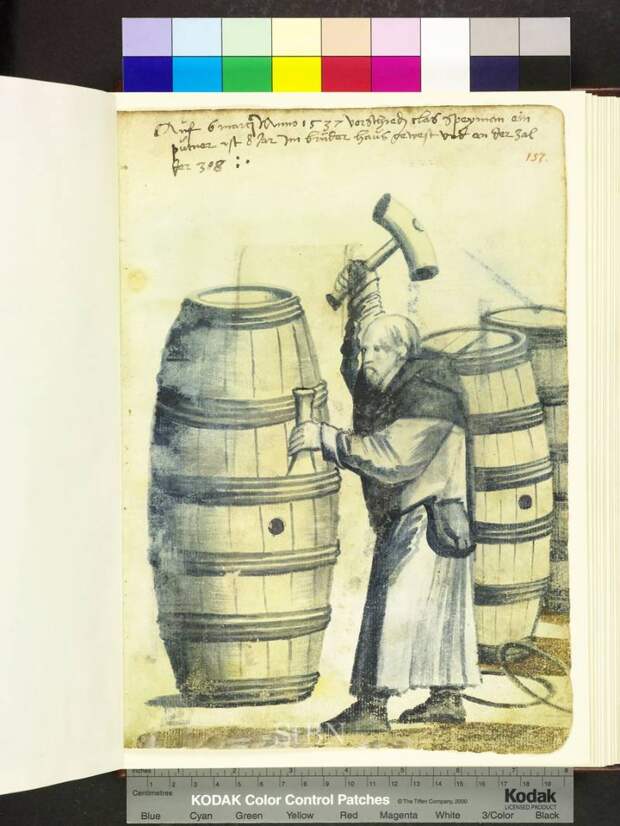 Auf 6 marcj Anno 1537 verschied clas Speyman ein
putner ist 8 Jar Im bruder haus gewest vnd en der zal
der 308 :
157.
StBN
inches 1 2 3 4 5 6 7 8
Centimetres 1 2 3 4 5 6 7 8 9 10 11 12 13 14 15 16 17 18 19
KODAK Color Control Patches © The Tiffen Company, 2000
Kodak
LICENSED PRODUCT
Blue Cyan Green Yellow Red Magenta White 3/Color Black